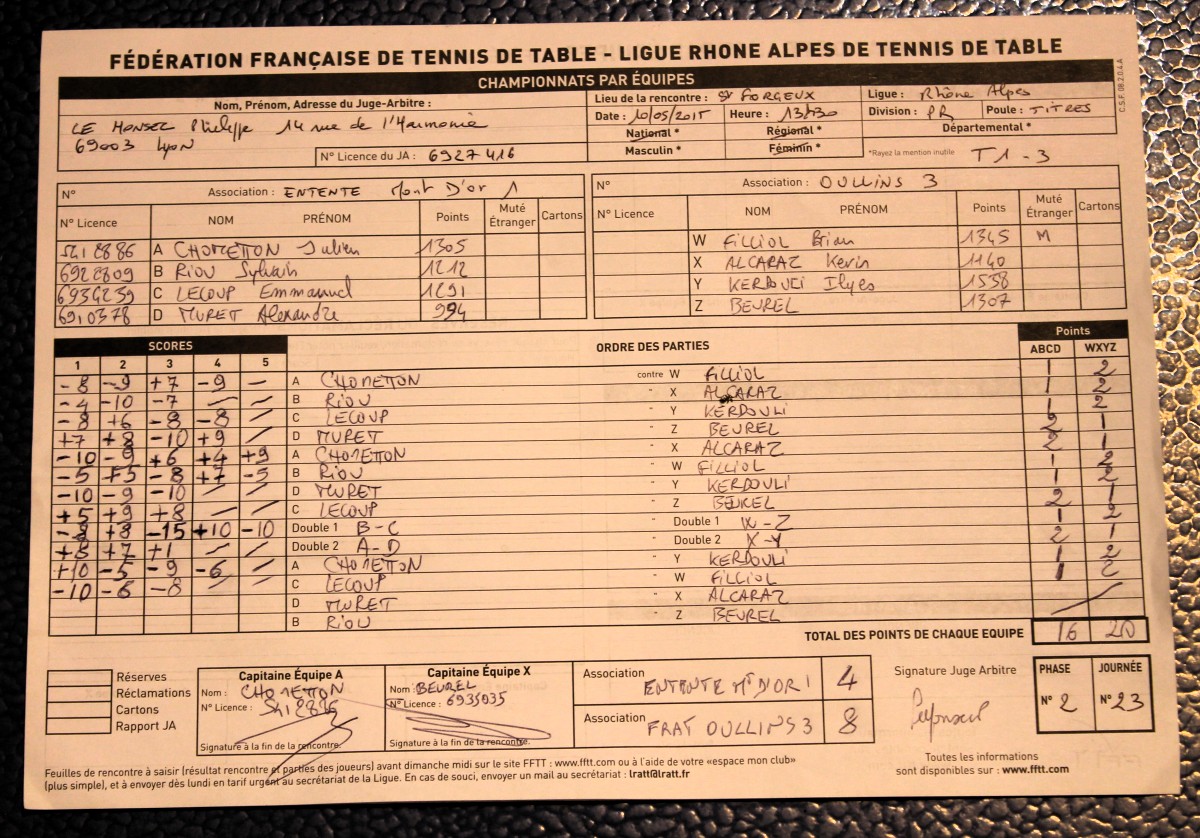 FÉDÉRATION FRANÇAISE DE TENNIS DE TABLE - LIGUE RHONE ALPES DE TENNIS DE TABLE
C.S.F. 08.2.0.4.A
CHAMPIONNATS PAR ÉQUIPES
Nom, Prénom, Adresse du Juge-Arbitre :
LE MONSEL Philippe 14 rue de l'Harmonie
69003 Lyon
N° Licence du JA : 6927416
Lieu de la rencontre : St FORGEUX
Ligue : Rhône Alpes
Date : 10/05/2015 Heure : 13H30 Division : PR Poule : TITRES
National * Régional * Départemental *
Masculin * Féminin * *Rayez la mention inutile T1-3
N° Association : ENTENTE Mont D'or 1
N° Licence NOM PRÉNOM Points Muté Étranger Cartons
5412886 A CHOMETTON Julien 1305
6922809 B RIOU Sylvain 1212
6934239 C LECOUP Emmanuel 1291
6910378 D MURET Alexandre 994
N° Association : OULLINS 3
N° Licence NOM PRÉNOM Points Muté Étranger Cartons
W FILLIOL Brian 1345 M
X ALCARAZ Kevin 1140
Y KERDOUCI Ilyes 1538
Z BEUREL 1307
SCORES ORDRE DES PARTIES Points
1 2 3 4 5 ABCD WXYZ
-8 -9 +7 -9 — A CHOMETTON contre W FILLIOL 1 2
-4 -10 -7 — — B RIOU " X ALCARAZ 1 2
-8 +6 -8 -8 / C LECOUP " Y KERDOULI 1 2
+7 +8 -10 +9 / D MURET " Z BEUREL 2 1
-10 -9 +6 +4 +9 A CHOMETTON " X ALCARAZ 2 1
-5 +5 -8 +7 -5 B RIOU " W FILLIOL 1 2
-10 -9 -10 / / D MURET " Y KERDOULI 1 2
+5 +9 +8 — / C LECOUP " Z BEUREL 2 1
-8 +8 -15 +10 -10 Double 1 B-C " Double 1 W-Z 1 2
+8 +7 +1 — / Double 2 A-D " Double 2 X-Y 2 1
+10 -5 -9 -6 / A CHOMETTON " Y KERDOULI 1 2
-10 -6 -8 / / C LECOUP " W FILLIOL 1 2
D MURET " X ALCARAZ
B RIOU " Z BEUREL
TOTAL DES POINTS DE CHAQUE EQUIPE 16 20
Réserves
Réclamations
Cartons
Rapport JA
Capitaine Équipe A
Nom : CHOMETTON
N° Licence : 5412886
Signature à la fin de la rencontre.
Capitaine Équipe X
Nom : BEUREL
N° Licence : 6935935
Signature à la fin de la rencontre.
Association ENTENTE Mt D'OR 1 4
Association FRAT OULLINS 3 8
Signature Juge Arbitre
PHASE JOURNÉE
N° 2 N° 23
Feuilles de rencontre à saisir (résultat rencontre et parties des joueurs) avant dimanche midi sur le site FFTT : www.fftt.com ou à l'aide de votre «espace mon club»
(plus simple), et à envoyer dès lundi en tarif urgent au secrétariat de la Ligue. En cas de souci, envoyer un mail au secrétariat : lratt@lratt.fr
Toutes les informations
sont disponibles sur : www.fftt.com